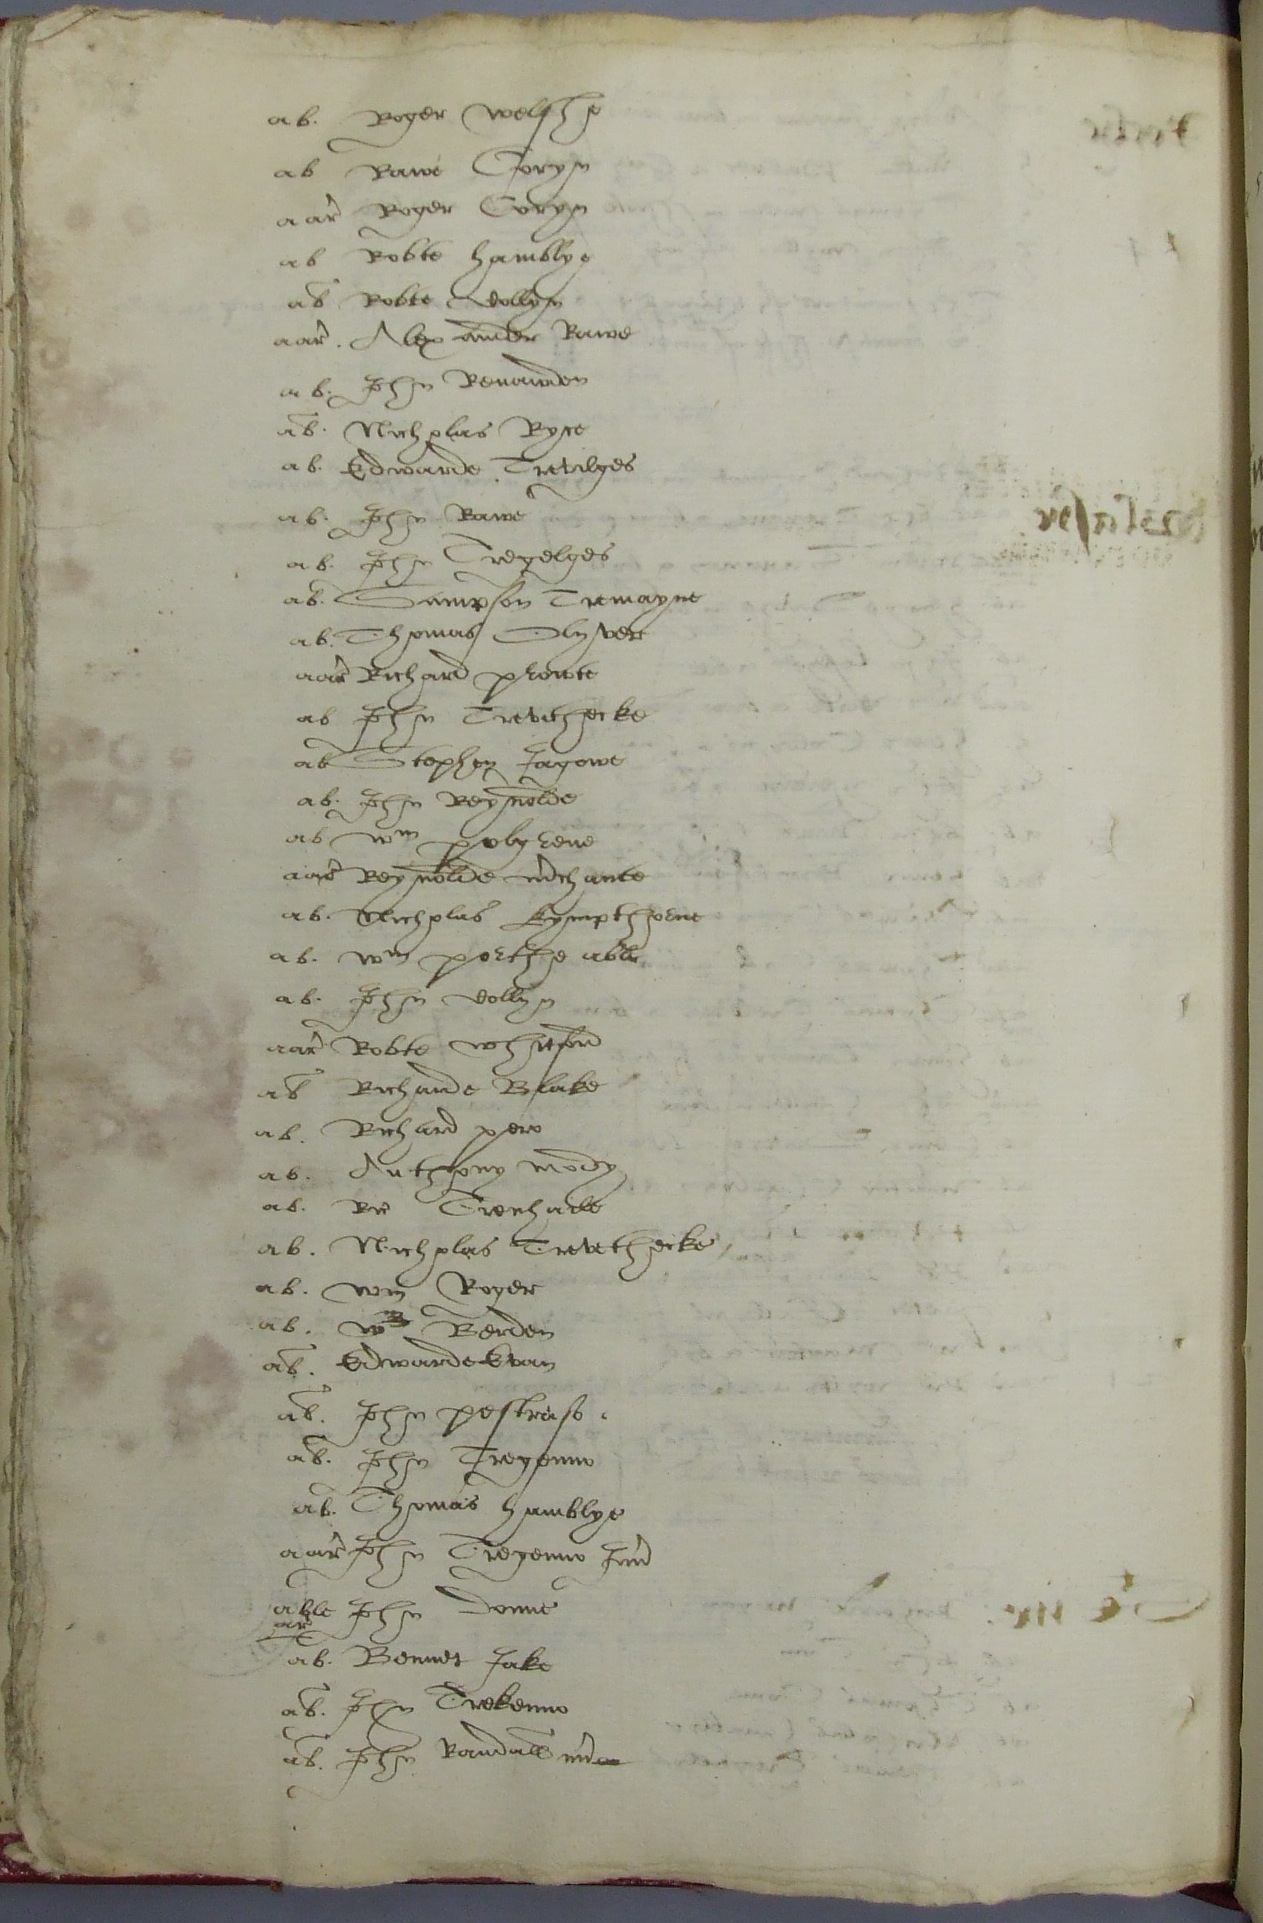 ab. Roger Welshe
ab Rawe Coryn
aar Roger Coryn
ab Robte hamblyn
ab Robte vollyn
aar. Alexander Rawe
ab. John Renawden
ab. Nicholas Ryse
ab. Edwarde Trevilges
ab. John Rawe
ab. John Tregelges
ab. Sampson Tremayne
ab. Thomas Olyver
aar Richard prowte
ab John Trevethecke
ab Stephen Jagowe
ab. John Reynolde
ab Wm polgrene
aar Reynolde mchante
ab. Nicholas kympthorne
ab. Wm porthe able
ab. John vollyn
aar Robte Whitford
ab Richarde Blake
ab. Richard pew
ab. Anthony mody
ab. Ric Trenhale
ab. Nicholas Trevethecke
ab. Wm Roger
ab. Wm Berden
ab. Edwarde Evan
ab. John
ab. John Tregenno
ab. Thomas hamblye
aar John Tregenno
able John Donne
ar
ab. Bennet Jake
ab. John Trekenno
ab. John Randall